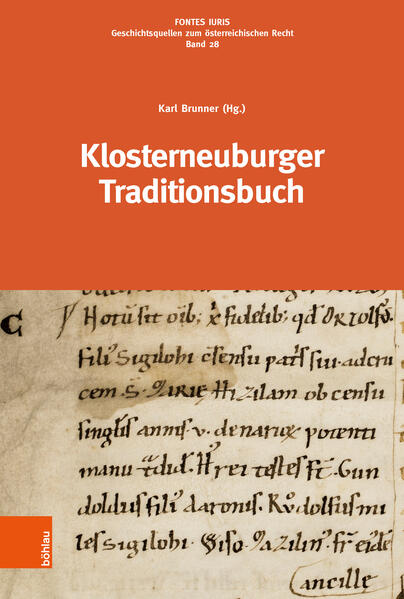 FONTES IURIS
Geschichtsquellen zum österreichischen Recht
Band 28
Karl Brunner (Hg.)
Klosterneuburger
Traditionsbuch
C Notū sit oīb; x̄ fidelib; qđ Ortolfꝰ.
filiꝰ Sigilohi c̄sensu patˢ sui. adcru
cem S. MARIĘ Hizilam ob censū
singlis annis . v . denarioꝝ potenti
manu tdid. rei testes st̄. Gun
doldus filiꝰ aaronis. Růdolfus mi
les sigilohi. Giso. fr̄ eidē
ancillę
böhlau